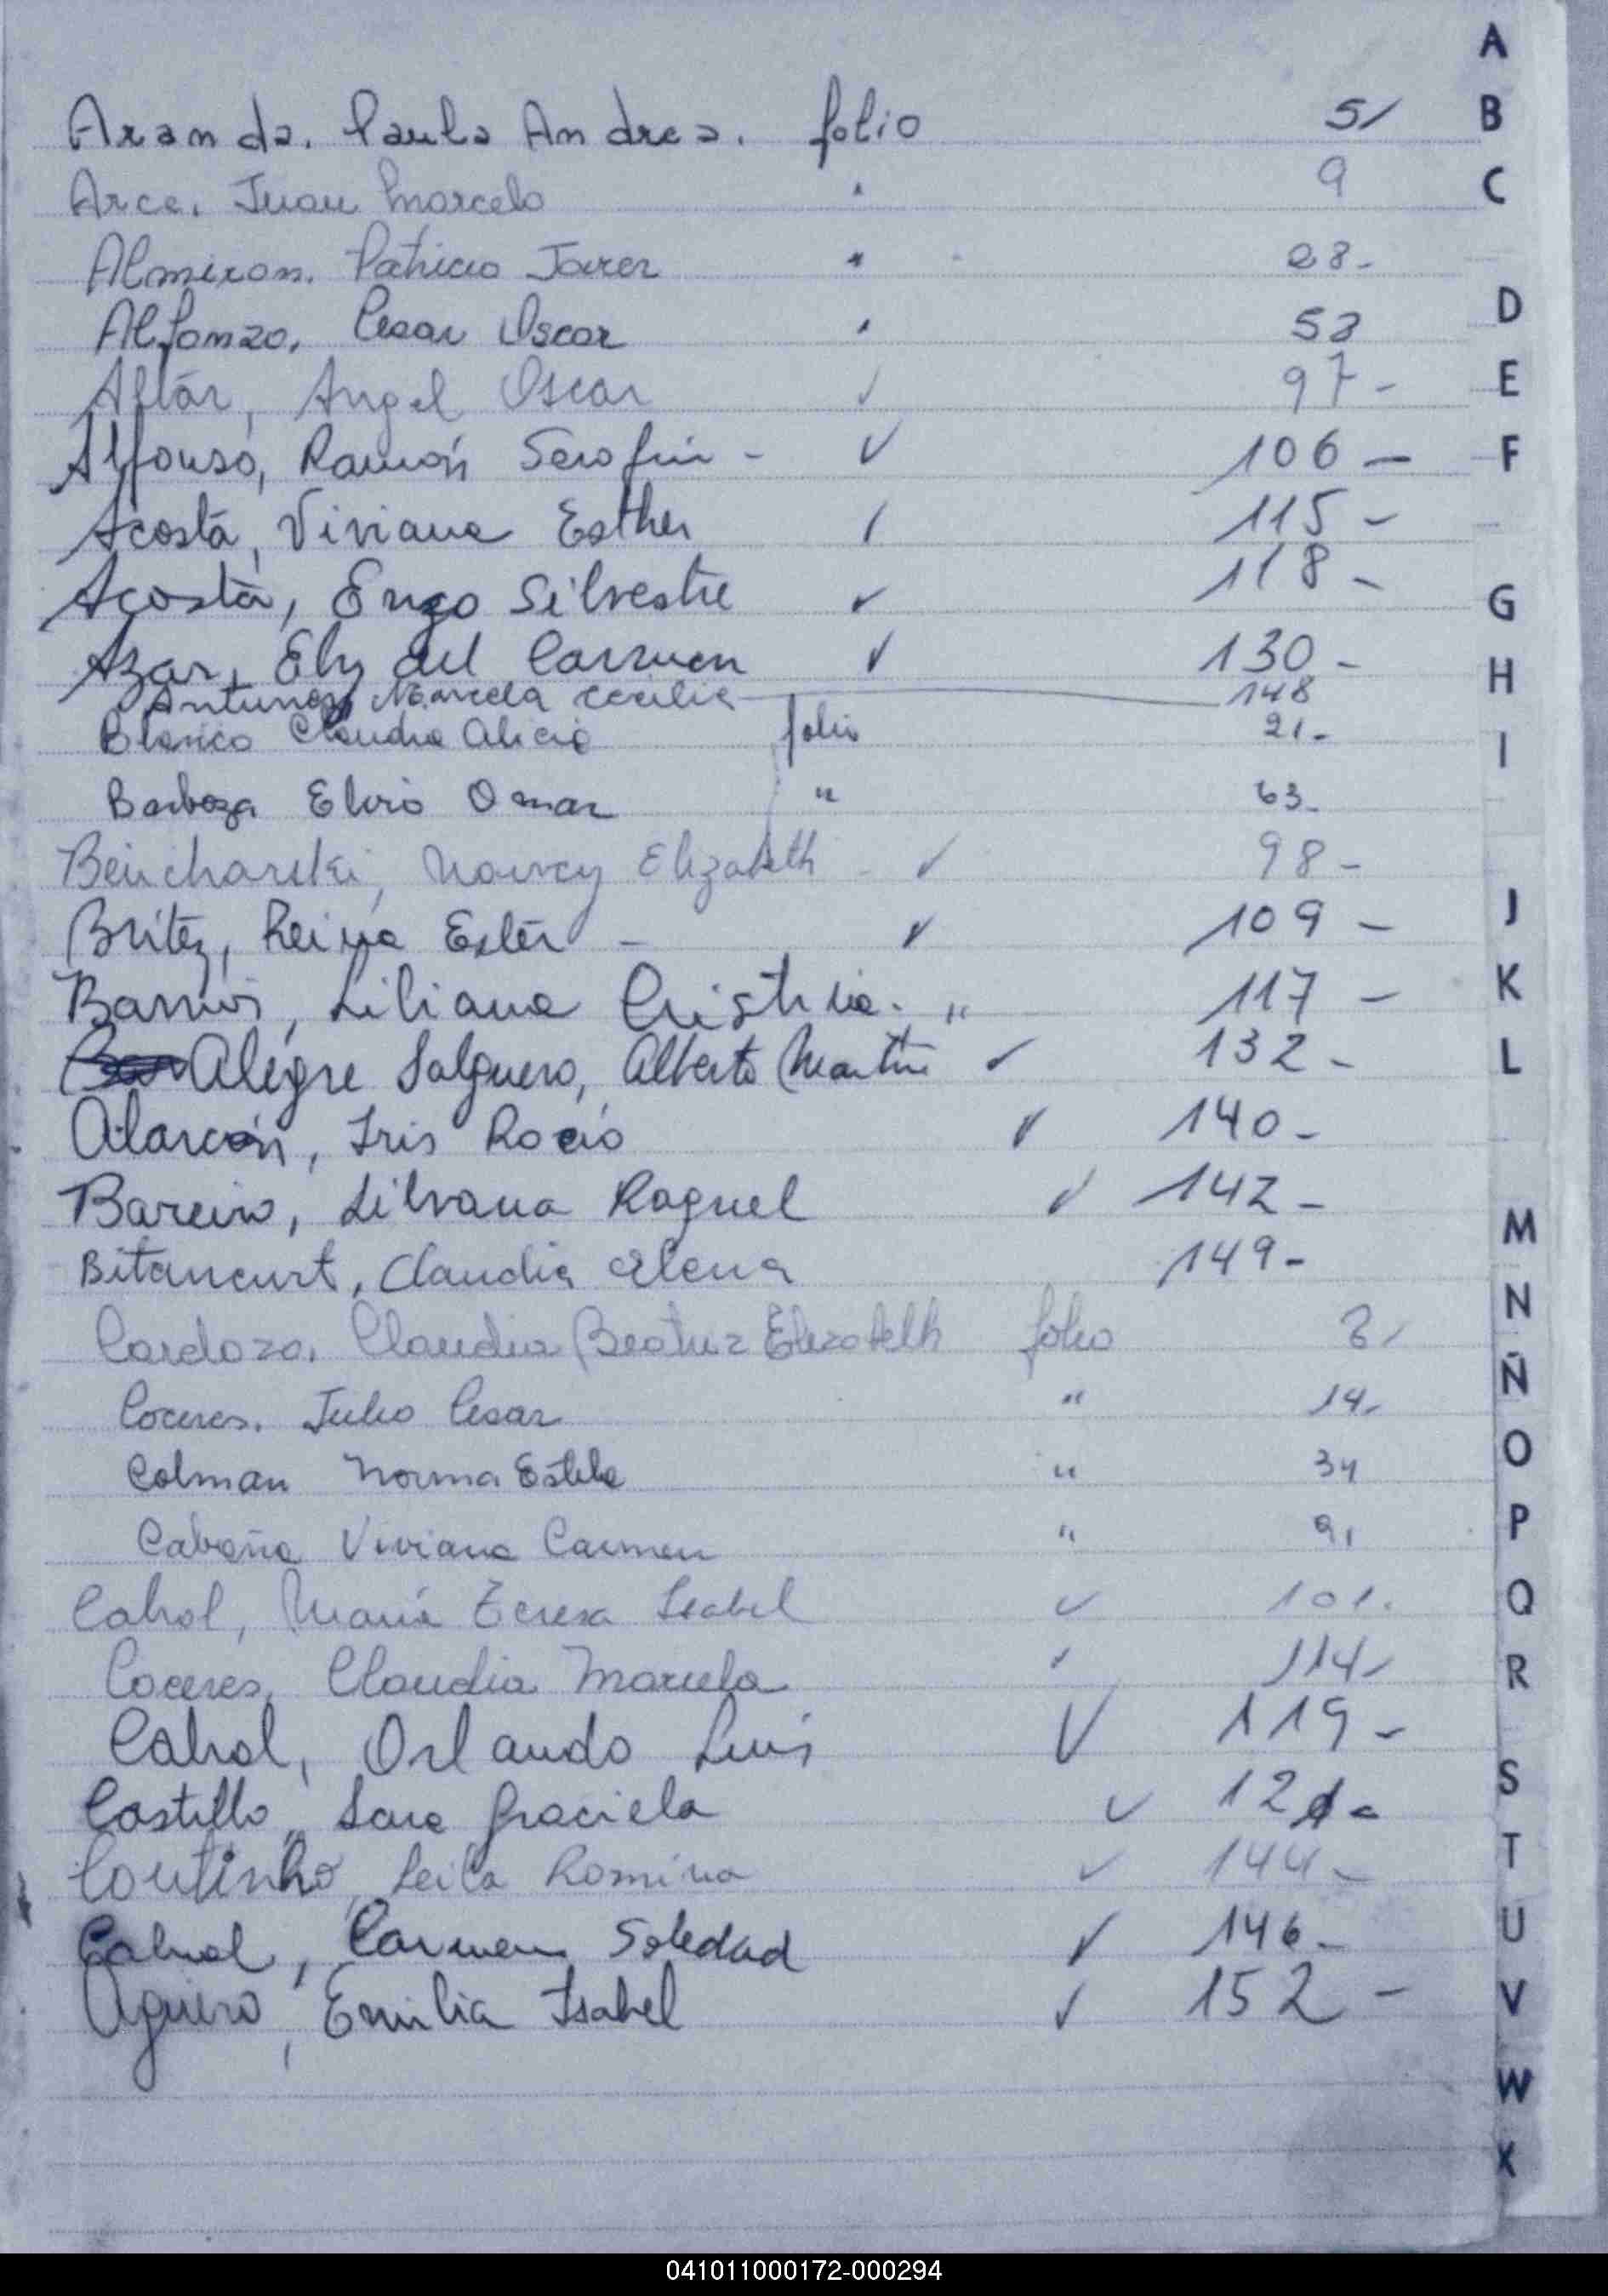 Aranda. Paula Andrea. folio 5/
Arce. Juan Marcelo " 9
Almiron. Patricio Javier " 28-
Alfonzo. Cesar Oscar " 53
Altár, Angel Oscar ✓ 97-
Alfonso, Ramón Serafin - ✓ 106 -
Acosta, Viviana Esther ✓ 115 -
Acosta, Enzo Silvestre ✓ 118 -
Azar, Ely del Carmen ✓ 130 -
Antunez Marcela Cecilia 148
Blanco Claudia Alicia folio 21-
Barboza Elvio Omar " 63-
Beincharski, Nancy Elizabeth - ✓ 98 -
Britez, Reina Ester - ✓ 109 -
Barrios, Liliana Cristina. " 117 -
Alegre Salguero, Alberto Martin ✓ 132 -
Alarcón, Iris Rocío ✓ 140 -
Bareiro, Silvana Raquel ✓ 142 -
Bitancurt, Claudia Elena 149 -
Cardozo. Claudia Beatriz Elizabeth folio
Coceres. Julio Cesar " 14-
Colman Norma Estela " 34
Cabaña Viviana Carmen "
Cabral, María Teresa Isabel ✓ 101.
Coceres, Claudia Marcela ✓ 114-
Cabral, Orlando Luis ✓ 119 -
Castillo, Sara Graciela ✓ 121 -
Coutinho, Leila Romina ✓ 144 -
Cabral, Carmen Soledad ✓ 146 -
Aguero, Emilia Isabel ✓ 152 -
A
B
C
D
E
F
G
H
I
J
K
L
M
N
Ñ
O
P
Q
R
S
T
U
V
W
X
041011000172-000294